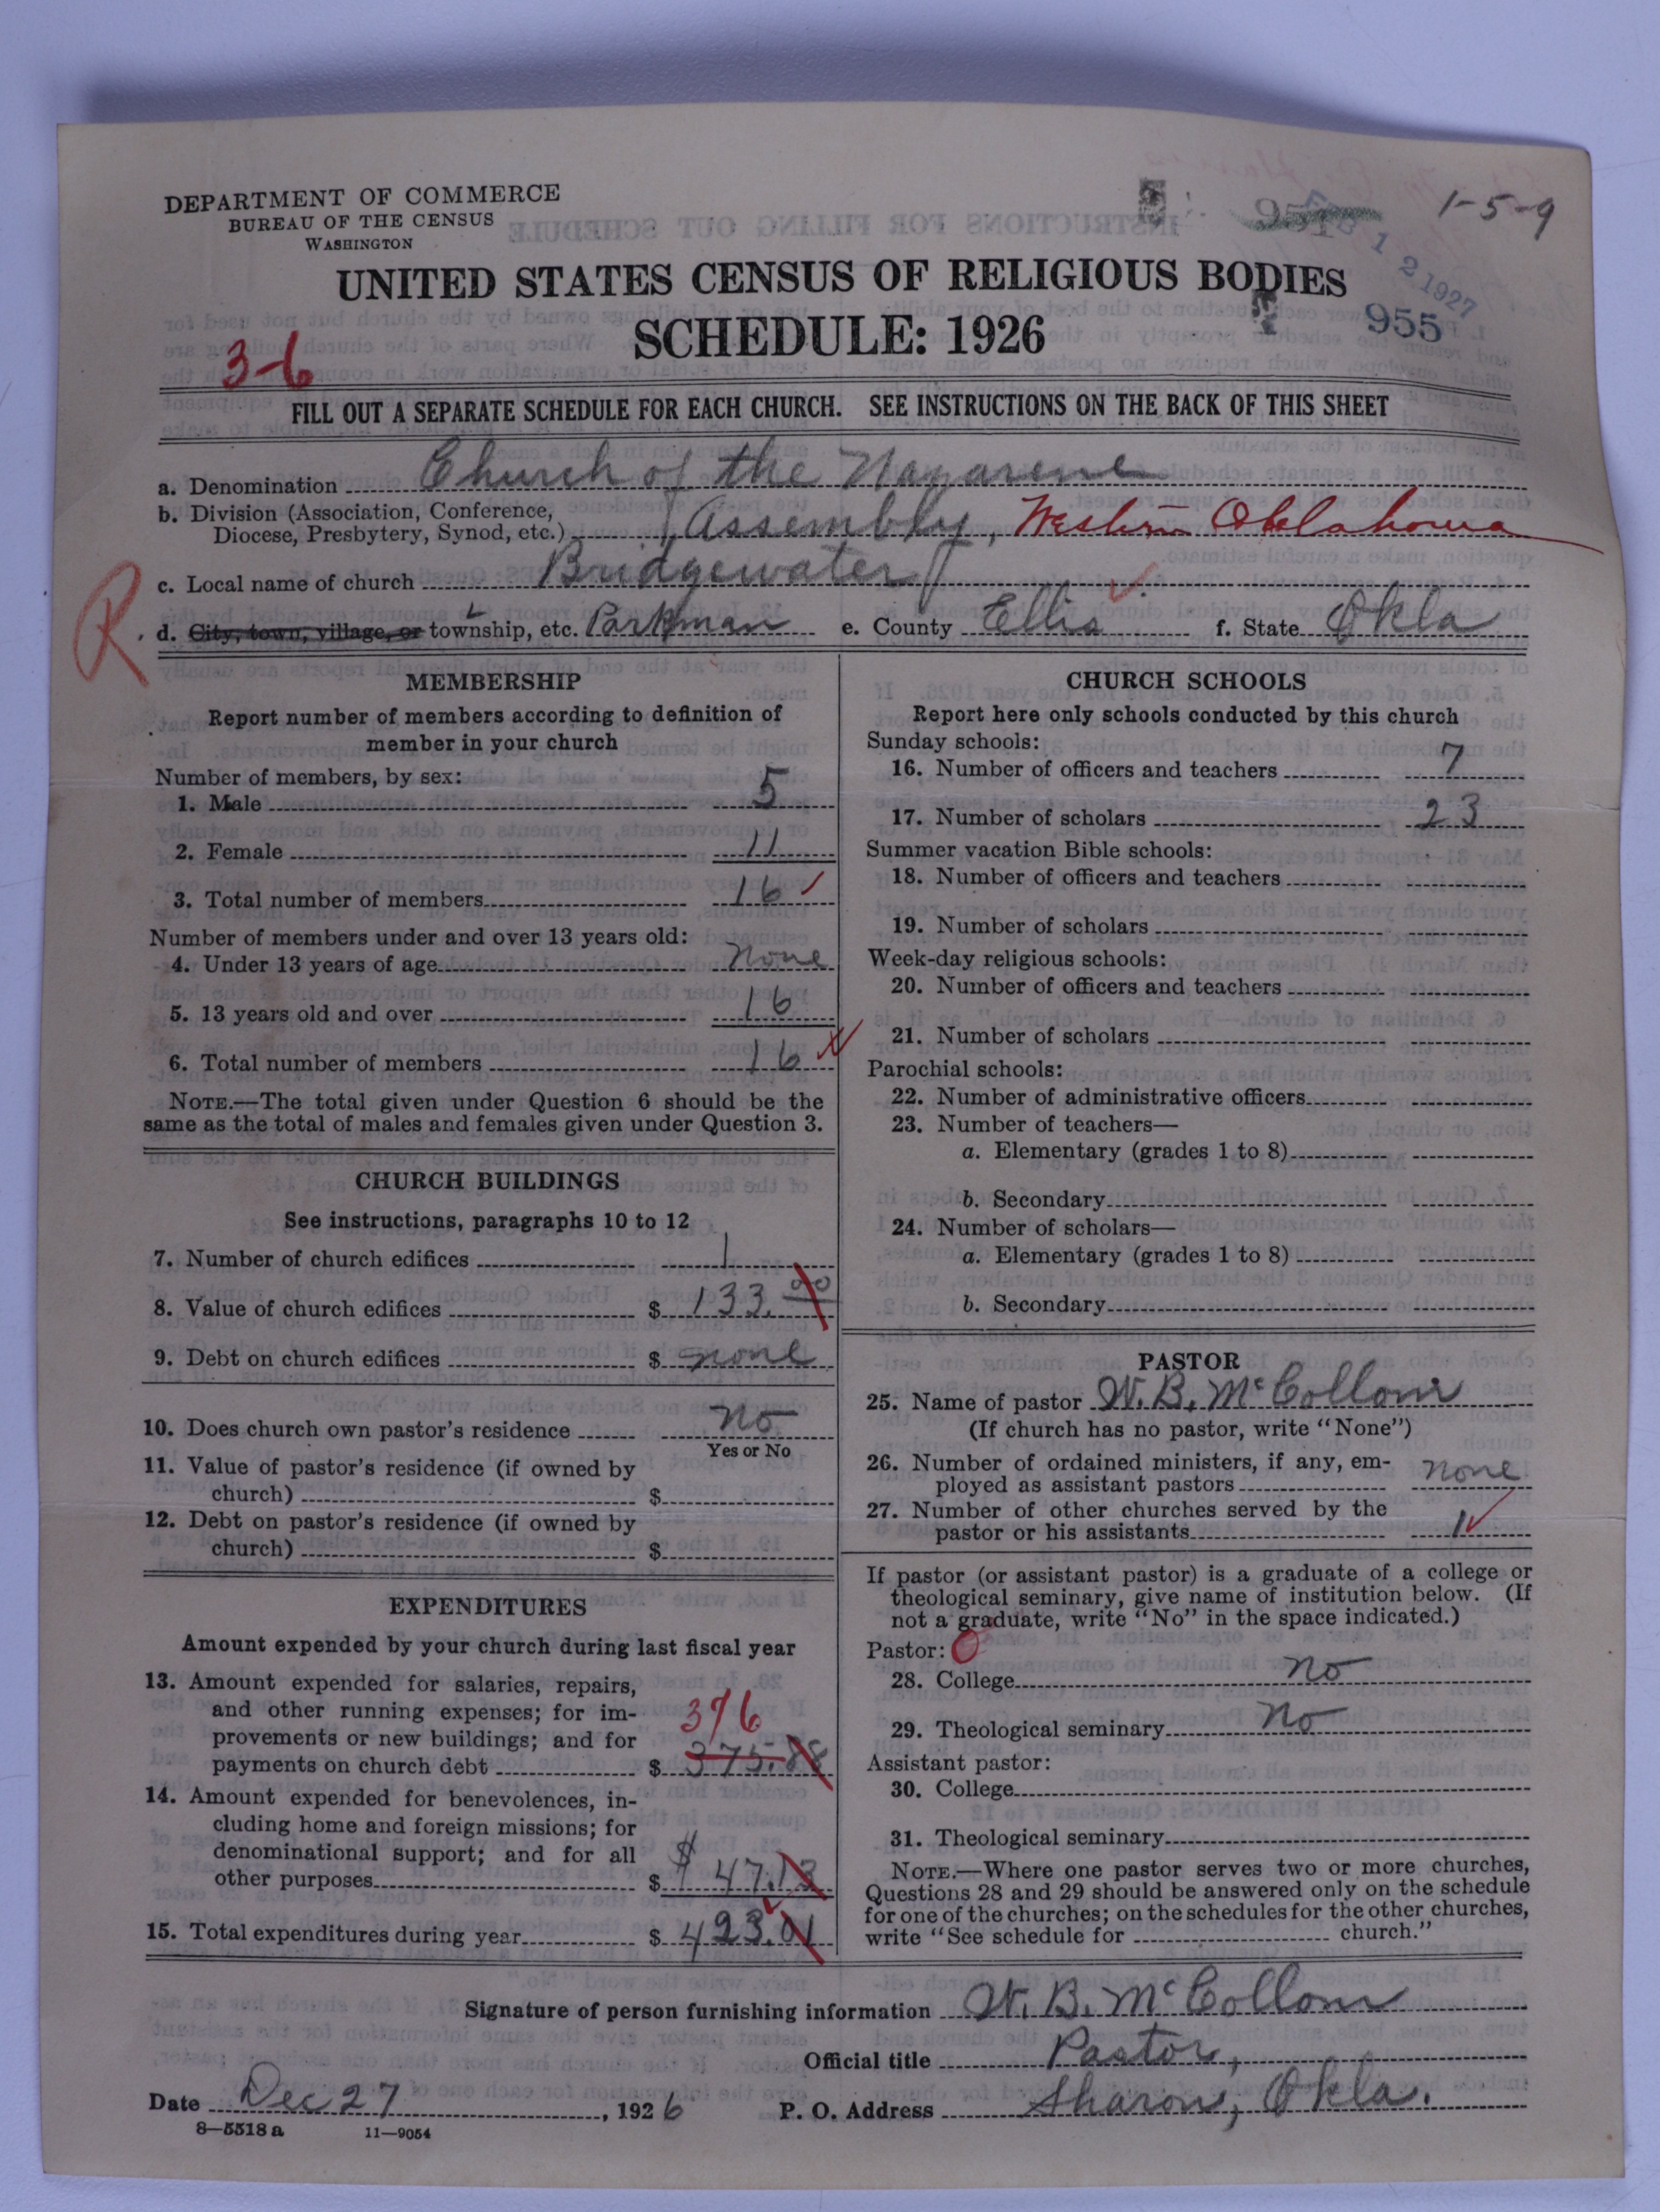 DEPARTMENT OF COMMERCE
BUREAU OF THE CENSUS
WASHINGTON
1-5-9
951
FEB 12 1927
955
UNITED STATES CENSUS OF RELIGIOUS BODIES
SCHEDULE: 1926
3-6
FILL OUT A SEPARATE SCHEDULE FOR EACH CHURCH. SEE INSTRUCTIONS ON THE BACK OF THIS SHEET
a. Denomination Church of the Nazarene
b. Division (Association, Conference,
Diocese, Presbytery, Synod, etc.) Assembly, Western Oklahoma
c. Local name of church Bridgewater
R
d. City, town, village, or township, etc. Parkman e. County Ellis f. State Okla
MEMBERSHIP
Report number of members according to definition of
member in your church
Number of members, by sex:
1. Male 5
2. Female 11
3. Total number of members 16
Number of members under and over 13 years old:
4. Under 13 years of age None
5. 13 years old and over 16
6. Total number of members 16
NOTE.—The total given under Question 6 should be the
same as the total of males and females given under Question 3.
CHURCH BUILDINGS
See instructions, paragraphs 10 to 12
7. Number of church edifices 1
8. Value of church edifices $ 133.00
9. Debt on church edifices $ none
10. Does church own pastor's residence No
Yes or No
11. Value of pastor's residence (if owned by
church) $
12. Debt on pastor's residence (if owned by
church) $
EXPENDITURES
Amount expended by your church during last fiscal year
13. Amount expended for salaries, repairs,
and other running expenses; for im-
provements or new buildings; and for
376
payments on church debt $ 375.88
14. Amount expended for benevolences, in-
cluding home and foreign missions; for
denominational support; and for all
other purposes $ $ 47.13
15. Total expenditures during year $ 423.01
CHURCH SCHOOLS
Report here only schools conducted by this church
Sunday schools:
16. Number of officers and teachers 7
17. Number of scholars 23
Summer vacation Bible schools:
18. Number of officers and teachers
19. Number of scholars
Week-day religious schools:
20. Number of officers and teachers
21. Number of scholars
Parochial schools:
22. Number of administrative officers
23. Number of teachers—
a. Elementary (grades 1 to 8)
b. Secondary
24. Number of scholars—
a. Elementary (grades 1 to 8)
b. Secondary
PASTOR
25. Name of pastor W. B. McCollom
(If church has no pastor, write "None")
26. Number of ordained ministers, if any, em-
ployed as assistant pastors none
27. Number of other churches served by the
pastor or his assistants 1
If pastor (or assistant pastor) is a graduate of a college or
theological seminary, give name of institution below. (If
not a graduate, write "No" in the space indicated.)
Pastor: 0
28. College No
29. Theological seminary No
Assistant pastor:
30. College
31. Theological seminary
NOTE.—Where one pastor serves two or more churches,
Questions 28 and 29 should be answered only on the schedule
for one of the churches; on the schedules for the other churches,
write "See schedule for church."
Signature of person furnishing information W. B. McCollom
Official title Pastor,
Date Dec 27, 1926 P. O. Address Sharon, Okla.
8—5518 a 11—9054